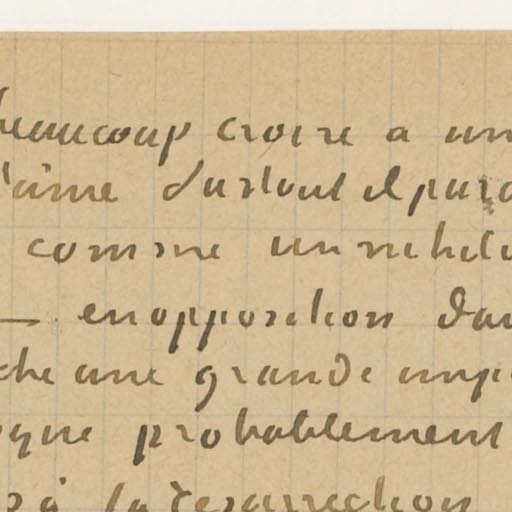 beaucoup croire a un
l'âme surtout il para
comme un nihili
— en opposition dan
che une grande imp
que probablement
à la résurrection